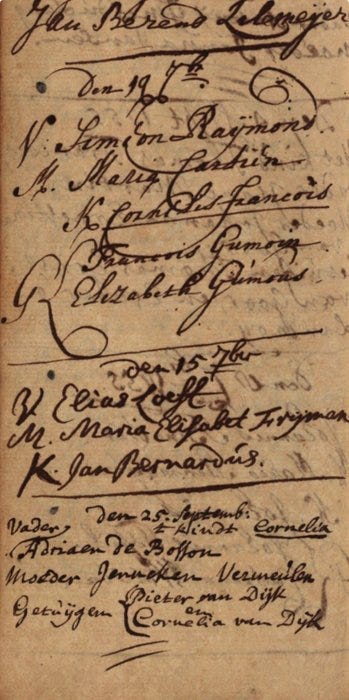 Jan Berend Telemeijer
Den 19 7b.
V: Simeon Raijmond.
M. Maria Cardin
K Cornelis Francois
G Francois Gumoin
Elizabeth Gumous
den 15 7br
V Elias Loeff
M. Maria Elisabet Frijman
K. Jan Bernardus.
den 25. Septemb:
Vader, t kindt Cornelia
Adriaen de Bosson
Moeder Jenneken Vermeulen
Getuijgen Pieter van Dijk
en
Cornelia van Dijk